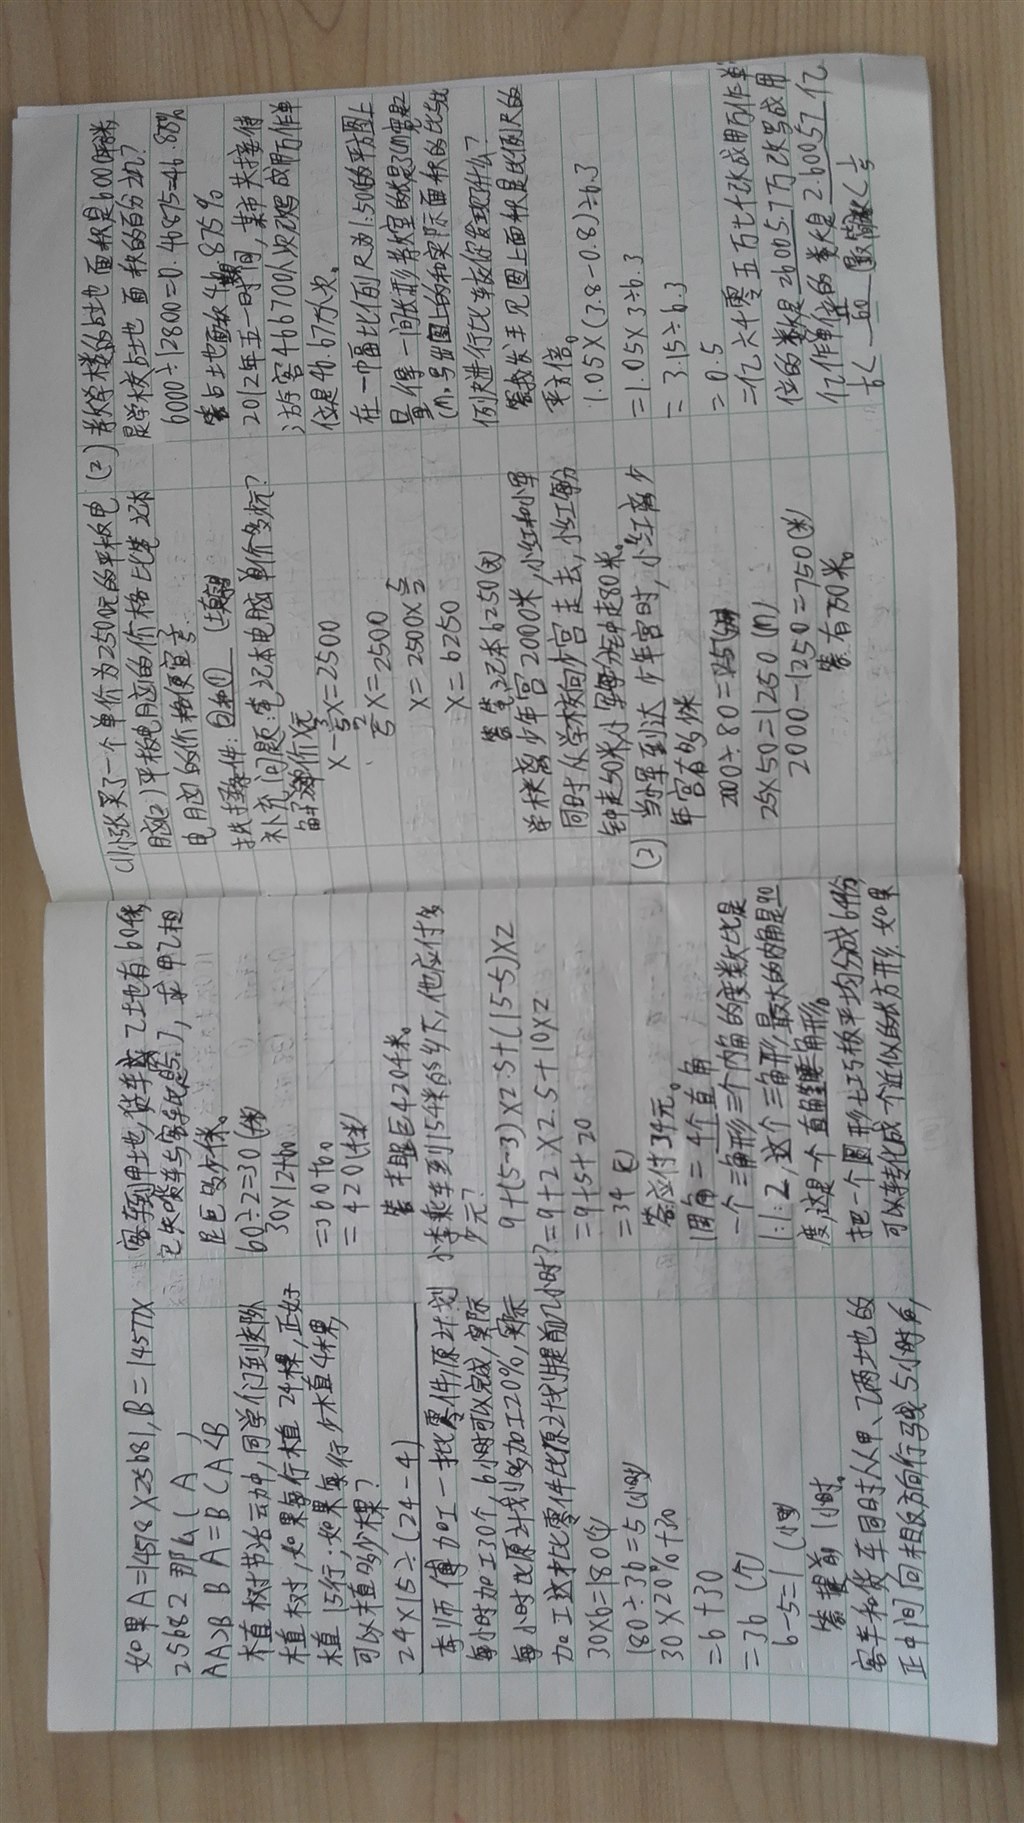 如果A=14578×25681,B=14577×
25682 那么( A )
A A>B B A=B C A<B
植树节活动中,同学们到郊外
植树,如果每行植24棵,正好
植15行.如果每行少植4棵,
可以植多少棵?
24×15÷(24-4)
李师傅加工一批零件,原计划
每小时加工30个,6小时可以完成,实际
每小时比原计划多加工20%,实际
加工这批零件比原计划提前几小时?
30×6=180(个)
180÷36=5(小时)
30×20%+30
=6+30
=36(个)
6-5=1(小时)
答:提前1小时。
客车和货车同时从甲、乙两地的
正中间向相反方向行驶5小时后,
客车到甲地,货车离乙地有60千米,
已知货车与客车比是5:7,求甲乙相
距多少千米。
60÷2=30(千米)
30×12+60
=360+60
=420(千米)
答:相距420千米。
小李乘车到15千米的乡下,他应付多
少元?
9+(5-3)×2.5+(15-5)×2
=9+2×2.5+10×2
=9+5+20
=34(元)
答:应付34元。
1周角=4个直角
一个三角形三个内角的度数比是
1:1:2,这个三角形最大的内角是90
度,这是一个直角等腰角形。
把一个圆形七巧板平均分成64份,
可以转化成一个近似的长方形.如果
(1)小张买了一个单价为2500元的平板电
脑(2)平板电脑的价格比笔记本
电脑的价格便宜3/5
选择条件:①和② (填序号)
补充问题:笔记本电脑单价多少元?
解:设单价X元
X-3/5X=2500
2/5X=2500
X=2500×5/2
X=6250
答:笔记本6250(元)
学校离少年宫2000米,小红和小军
同时从学校向少宫走去,小红每分
钟走50米,小军每分钟走80米。
(2)当小军到达少年宫时,小红离少
年宫有多少米
2000÷80=25(分)
25×50=1250(m)
2000-1250=750(米)
答:有750米。
(2)教学楼的占地面积是6000平方米,
是学校占地面积的百分之几?
6000÷12800=0.46875=46.88%
答:占土地面积46.875%
2012年五一时间,某市共接待
游客466700人次,改写成用万作单
位是46.67万人次。
在一幅比例尺为1:500的平方图上
量得一间长形教室的长是3cm,宽是2
cm.写出图上的和实际面积的比,与比
例尺进行比较,你发现什么?
答:我发现图上面积是比例尺的
平方倍。
1.05×(3.8-0.8)÷6.3
=1.05×3÷6.3
=3.15÷6.3
=0.5
二亿六千零五万七千改成用万作单
位的数是26005.7万,改写成用
亿作单位的数是2.60057亿